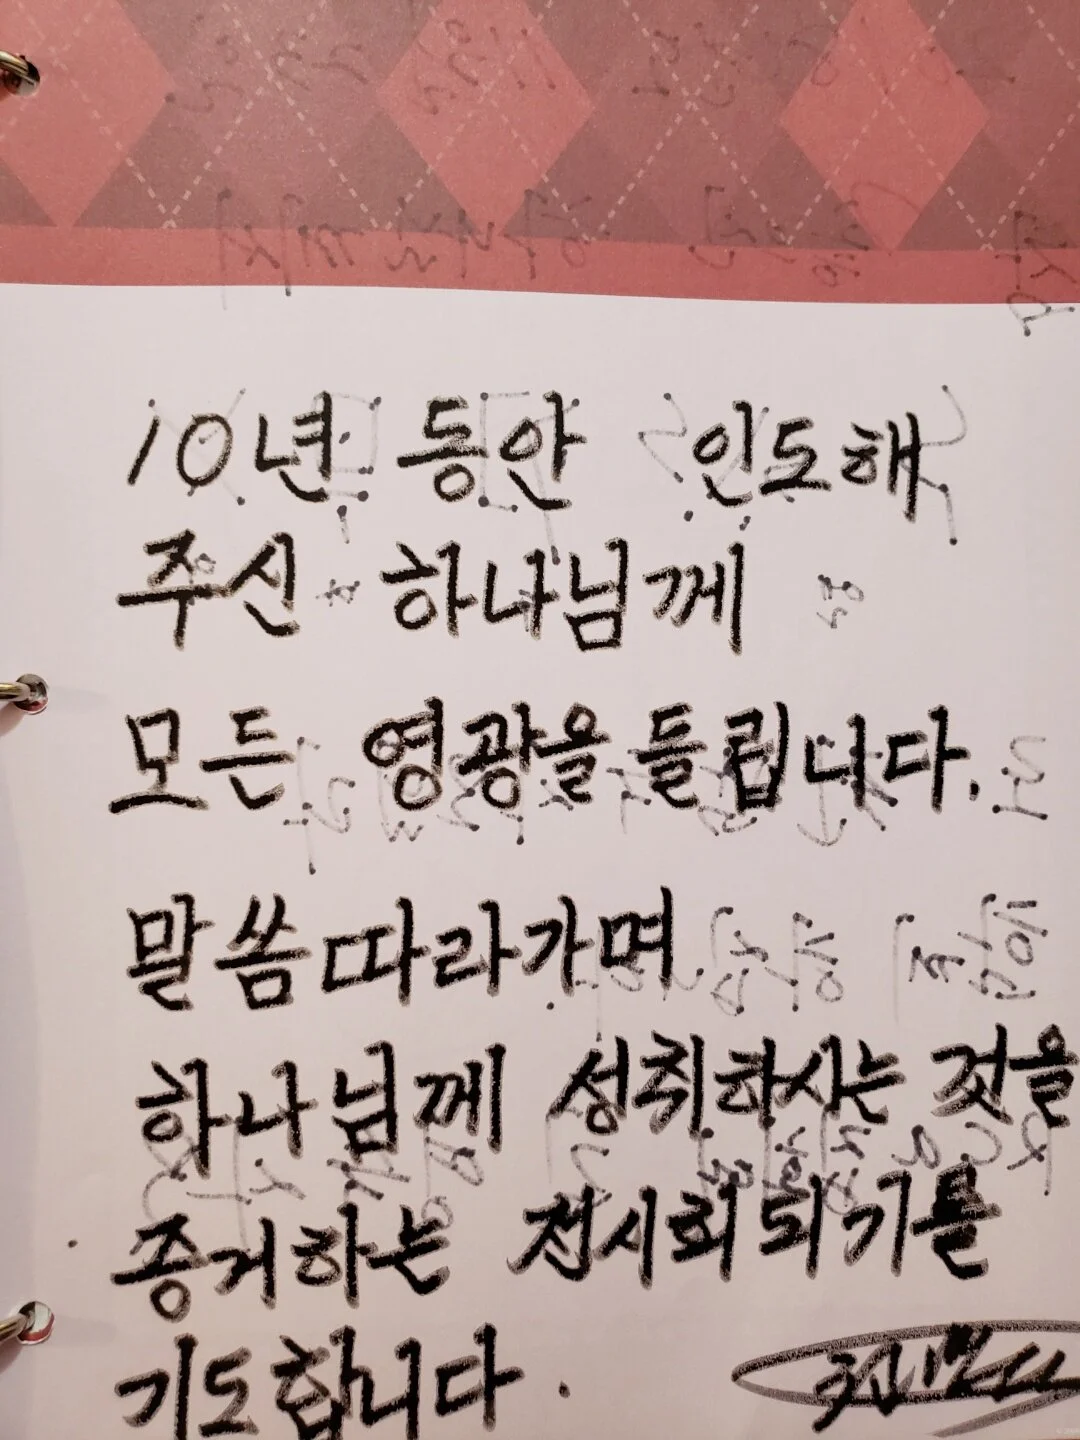 10년 동안 인도해
주신 하나님께
모든 영광을 돌립니다.
말씀따라가며
하나님께서 성취하시는 것을
증거하는 전시회되기를
기도합니다.